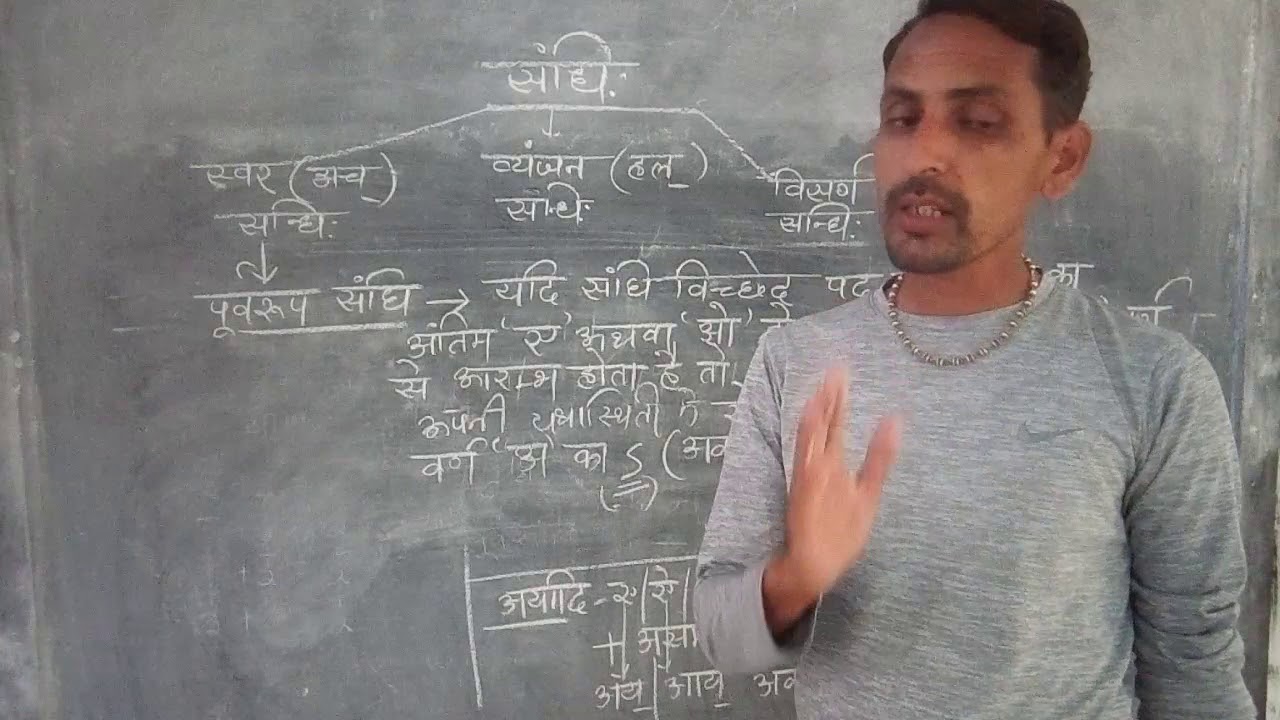 संधि:
स्वर (अच्) व्यंजन (हल्) विसर्ग
सन्धि: संधि: सन्धि:
पूर्वरूप संधि → यदि संधि विच्छेद पद का
अंतिम 'ए' अथवा 'ओ'
से आरम्भ होता है तो
अपनी यथास्थिती में
वर्ण 'अ' का ऽ (अव
अयादि - ए|ऐ|
+
अय्|आय् अव